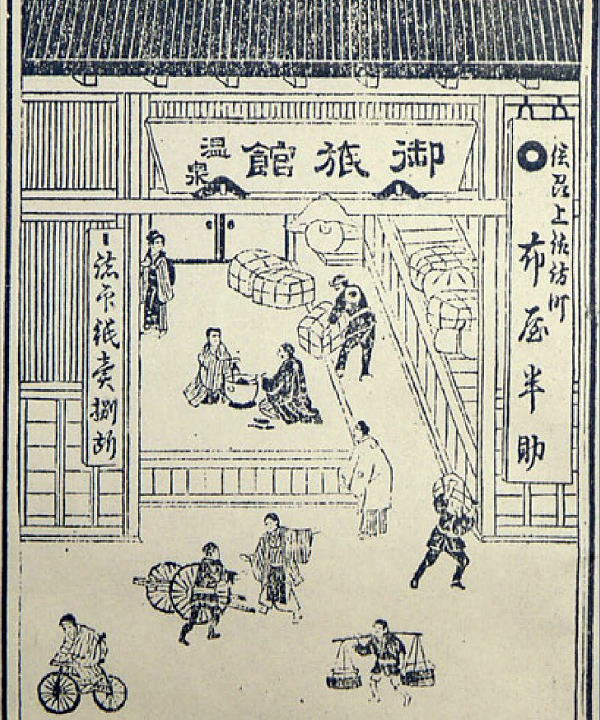 御旅館
温泉
信濃上諏訪町
布屋半助
紙賣捌所